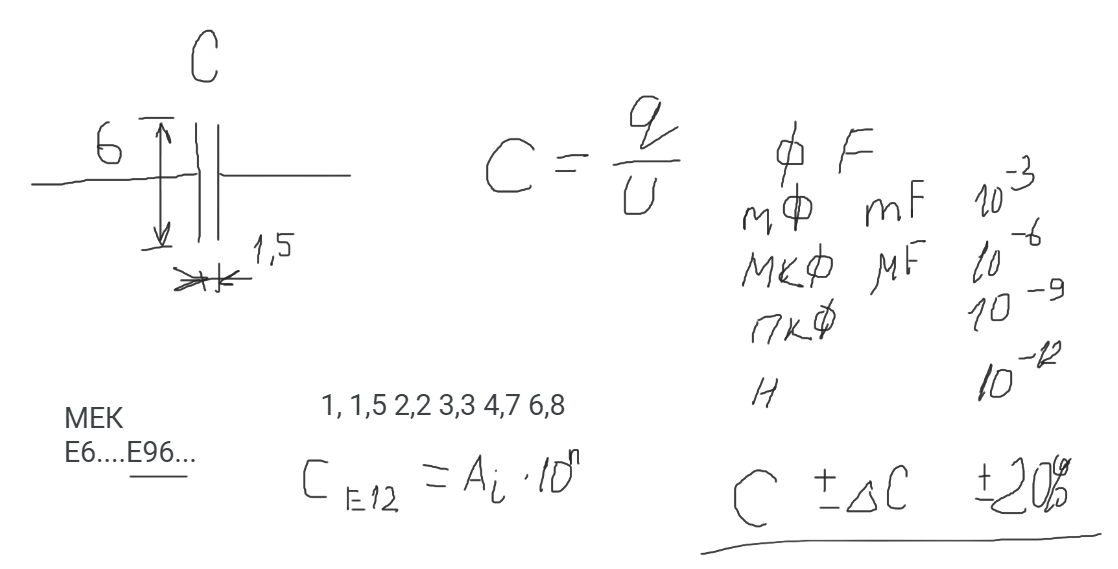 C
6
1,5
C = q/U
Ф F
мФ mF 10⁻³
мкФ μF 10⁻⁶
пкФ 10⁻⁹
н 10⁻¹²
МЕК
Е6....Е96...
1, 1,5 2,2 3,3 4,7 6,8
C E12 = Ai · 10ⁿ
C ± ΔC ±20%